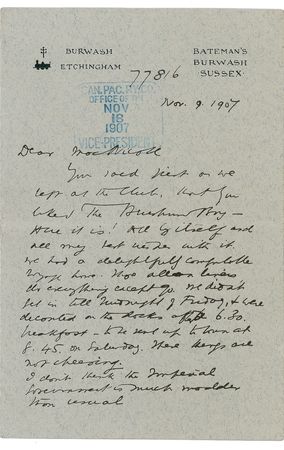 BURWASH
ETCHINGHAM
BATEMAN'S
BURWASH
SUSSEX
77816
CAN. PAC. RY. CO.
OFFICE OF THE
NOV
18
1907
VICE-PRESIDENT
Nov. 9. 1907
Dear
You said just as we
left at the Club, that you
liked The Brushwood Boy –
Here it is! All by itself and
all my best wishes with it.
We had a delightfully comfortable
voyage home. The
do everything except go. We didn't
get in till midnight of Friday, & were
decanted on the docks after 6.30.
breakfast – to be sent up to town at
8.45. on Saturday. These things are
not cheering.
I don't think the Imperial
Government is much madder
than usual